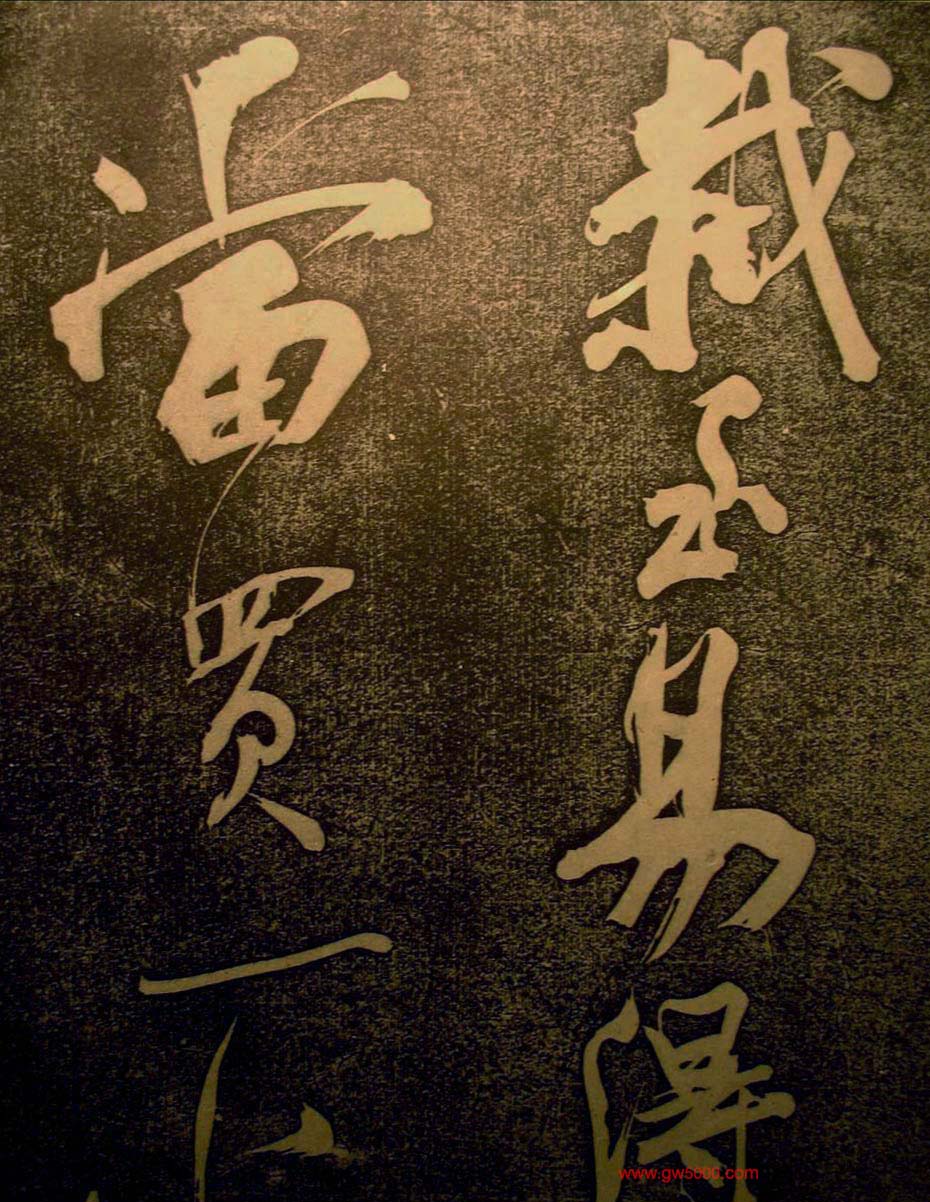 栽至易得
當買一小
www.gw5600.com